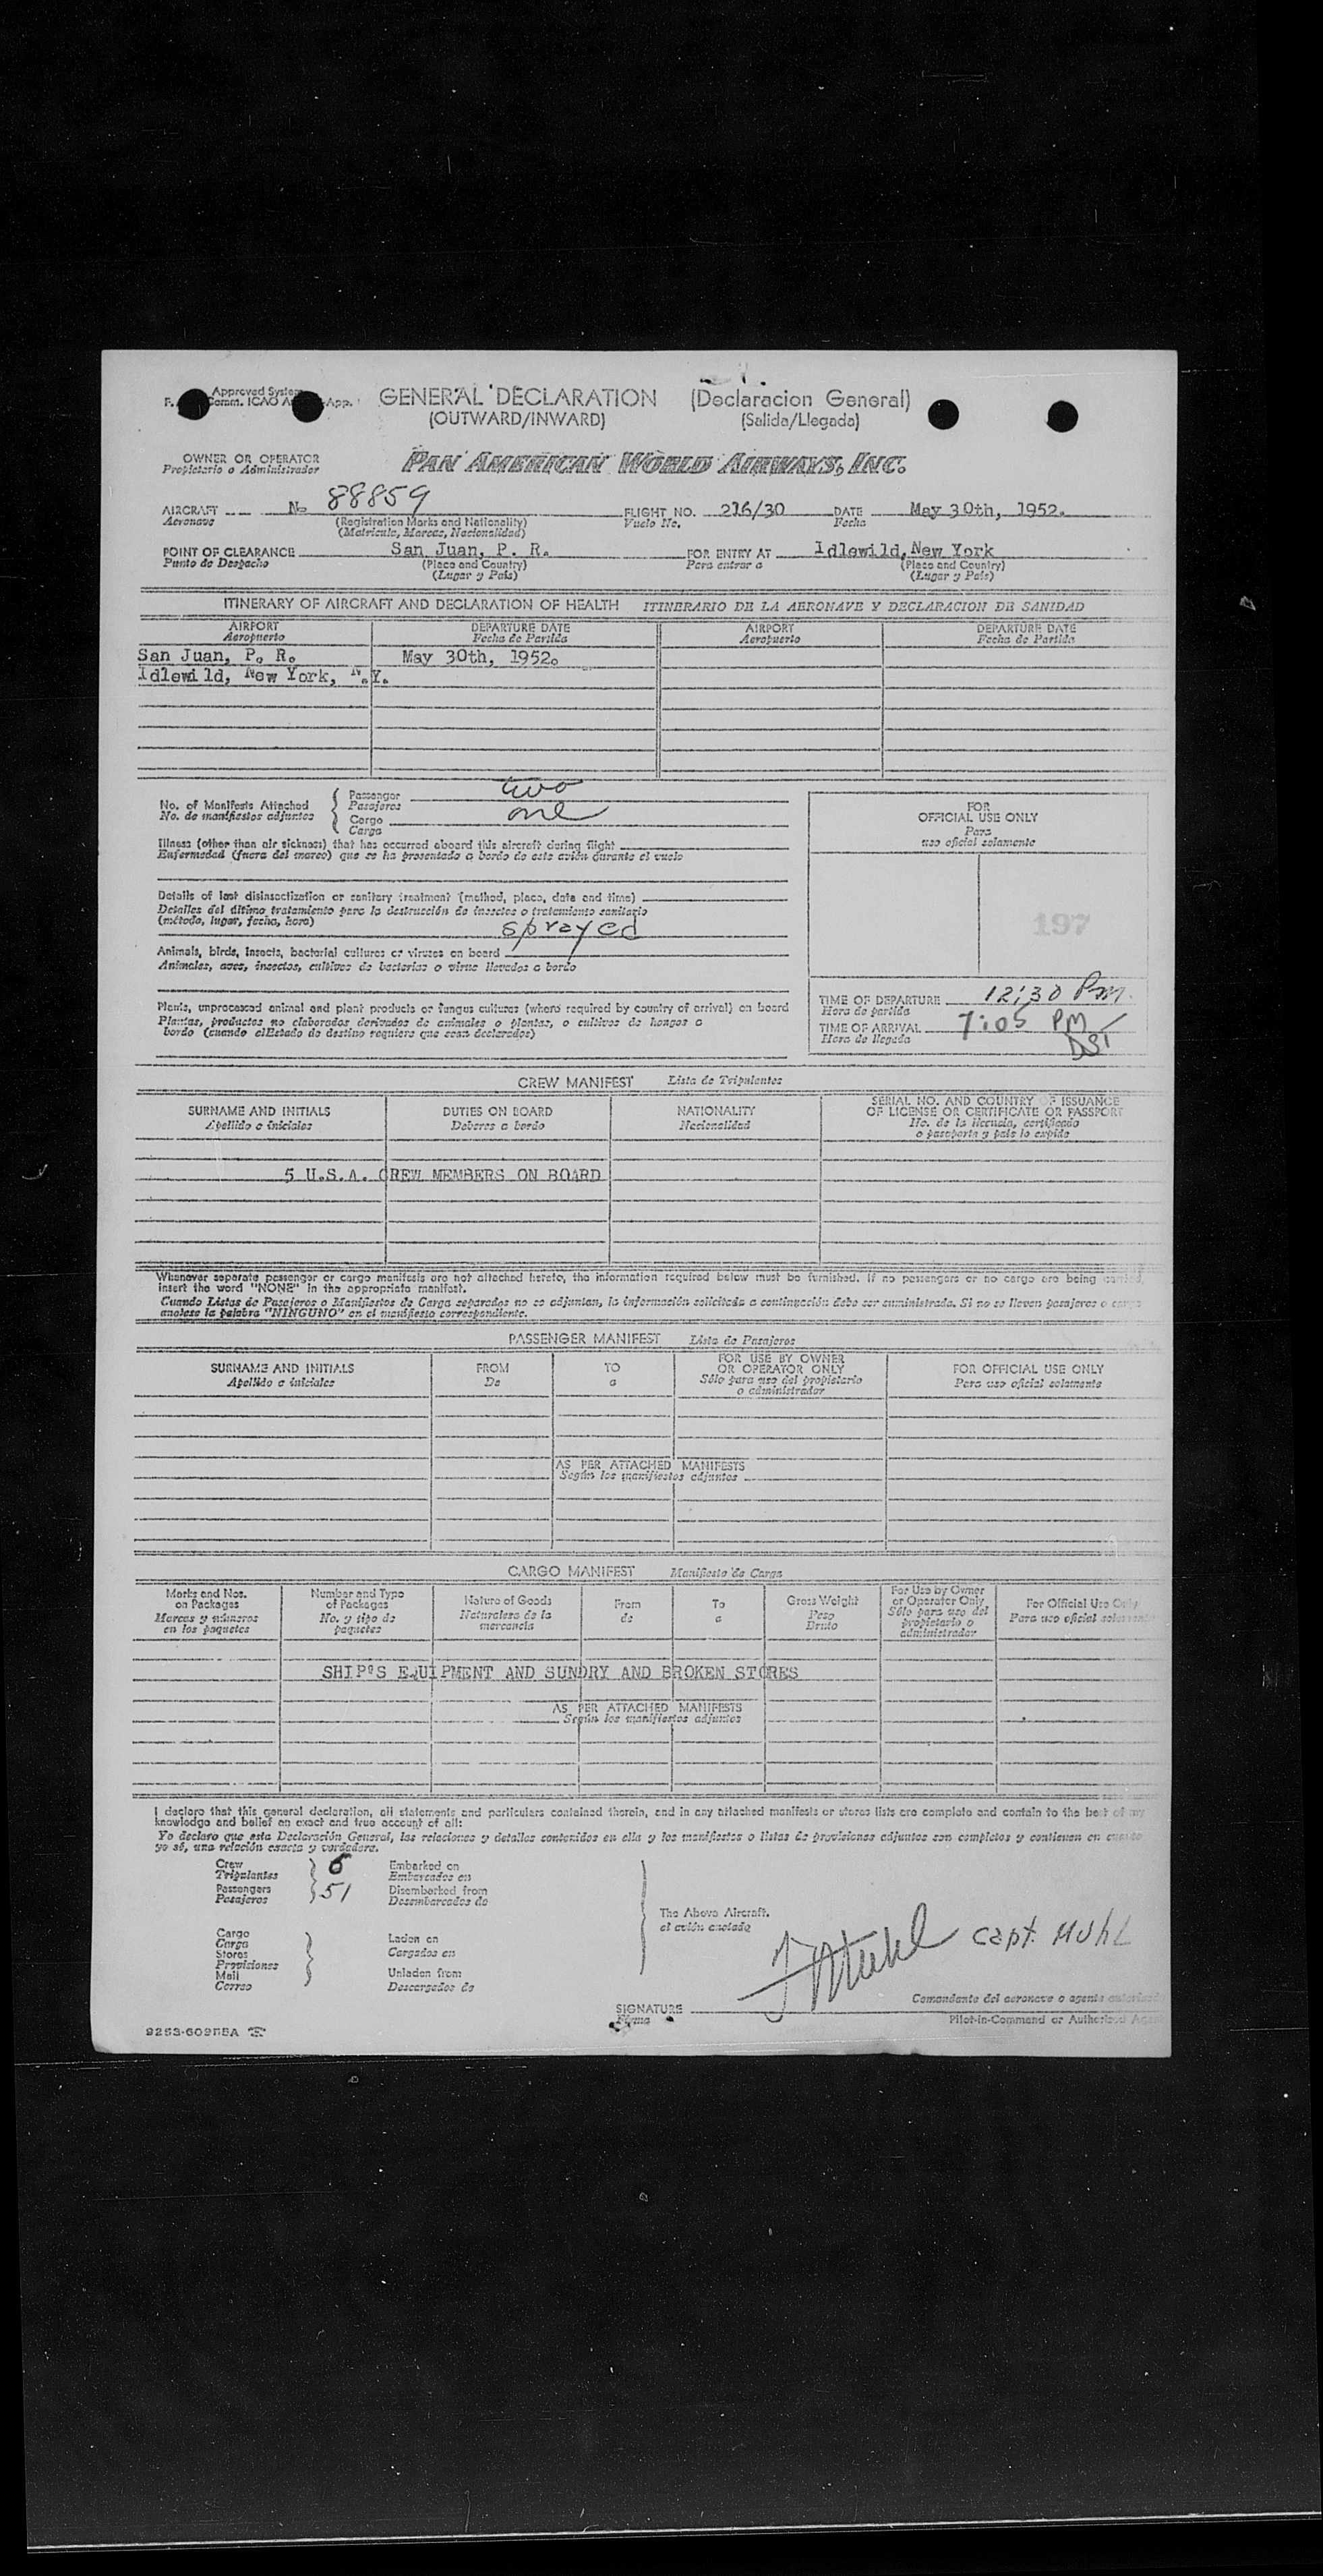 Approved System
F. Comm. ICAO An App.
GENERAL DECLARATION (Declaracion General)
(OUTWARD/INWARD) (Salida/Llegada)
OWNER OR OPERATOR
Propietario o Administrador
PAN AMERICAN WORLD AIRWAYS, INC.
AIRCRAFT No 88859 FLIGHT NO. 216/30 DATE May 30th, 1952.
Aeronave (Registration Marks and Nationality) Vuelo No. Fecha
(Matricula, Marcas, Nacionalidad)
POINT OF CLEARANCE San Juan, P. R. FOR ENTRY AT Idlewild, New York
Punto de Despacho (Place and Country) Para entrar a (Place and Country)
(Lugar y País) (Lugar y País)
ITINERARY OF AIRCRAFT AND DECLARATION OF HEALTH ITINERARIO DE LA AERONAVE Y DECLARACION DE SANIDAD
AIRPORT DEPARTURE DATE AIRPORT DEPARTURE DATE
Aeropuerto Fecha de Partida Aeropuerto Fecha de Partida
San Juan, P. R. May 30th, 1952.
Idlewild, New York, N.Y.
No. of Manifests Attached
No. de manifiestos adjuntos
Passenger two
Pasajeros
Cargo one
Carga
Illness (other than air sickness) that has occurred aboard this aircraft during flight
Enfermedad (fuera del mareo) que se ha presentado a bordo de este avión durante el vuelo
Details of last disinsectization or sanitary treatment (method, place, date and time)
Detalles del último tratamiento para la destrucción de insectos o tratamiento sanitario
(método, lugar, fecha, hora)
sprayed
Animals, birds, insects, bacterial cultures or viruses on board
Animales, aves, insectos, cultivos de bacterias o virus llevados a bordo
Plants, unprocessed animal and plant products or fungus cultures (where required by country of arrival) on board
Plantas, productos no elaborados derivados de animales o plantas, o cultivos de hongos a
bordo (cuando elEstado de destino requiera que sean declarados)
FOR
OFFICIAL USE ONLY
Para
uso oficial solamente
197
TIME OF DEPARTURE 12:30 Pm.
Hora de partida
TIME OF ARRIVAL 7:05 PM
Hora de llegada DST
CREW MANIFEST Lista de Tripulantes
SURNAME AND INITIALS DUTIES ON BOARD NATIONALITY SERIAL NO. AND COUNTRY OF ISSUANCE
OF LICENSE OR CERTIFICATE OR PASSPORT
Apellido e iniciales Deberes a bordo Nacionalidad No. de la licencia, certificado
o pasaporte y país lo expide
5 U.S.A. CREW MEMBERS ON BOARD
Whenever separate passenger or cargo manifests are not attached hereto, the information required below must be furnished. If no passengers or no cargo are being carried,
insert the word "NONE" in the appropriate manifest.
Cuando Listas de Pasajeros o Manifiestos de Carga separados no se adjuntan, la información solicitada a continuación debe ser suministrada. Si no se llevan pasajeros o carga
anotese la palabra "NINGUNO" en el manifiesto correspondiente.
PASSENGER MANIFEST Lista de Pasajeros
SURNAME AND INITIALS FROM TO FOR USE BY OWNER
OR OPERATOR ONLY FOR OFFICIAL USE ONLY
Apellido e iniciales De a Sólo para uso del propietario
o administrador Para uso oficial solamente
AS PER ATTACHED MANIFESTS
Según los manifiestos adjuntos
CARGO MANIFEST Manifiesto de Carga
Marks and Nos.
on Packages
Marcas y números
en los paquetes
Number and Type
of Packages
No. y tipo de
paquetes
Nature of Goods
Naturaleza de la
mercancia
From
de
To
a
Gross Weight
Peso
Bruto
For Use by Owner
or Operator Only
Sólo para uso del
propietario o
administrador
For Official Use Only
Para uso oficial solamente
SHIP'S EQUIPMENT AND SUNDRY AND BROKEN STORES
AS PER ATTACHED MANIFESTS
Según los manifiestos adjuntos
I declare that this general declaration, all statements and particulars contained therein, and in any attached manifests or stores lists are complete and contain to the best of my
knowledge and belief an exact and true account of all:
Yo declaro que esta Declaración General, las relaciones y detalles contenidos en ella y los manifiestos o listas de provisiones adjuntos son completos y contienen en cuanto
yo sé, una relación exacta y verdadera.
Crew Embarked on
Tripulantes Embarcados en
Passengers 51 Disembarked from
Pasajeros Desembarcados de
Cargo
Carga
Stores
Provisiones
Mail
Correo
Laden on
Cargados en
Unladen from
Descargados de
The Above Aircraft.
el avión anotado
capt. Muhl
SIGNATURE
Firma
Comandante del aeronave o agente autorizado
Pilot-in-Command or Authorized Agent